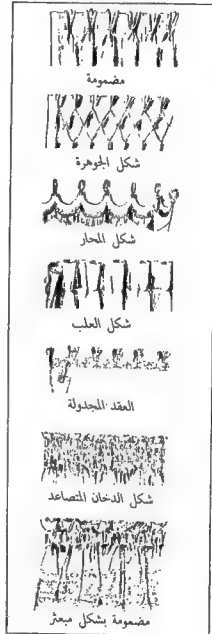 مضمومة
شكل الجوهرة
شكل المحار
شكل العلب
العقد المجدولة
شكل الدخان المتصاعد
مضمومة بشكل مبعثر